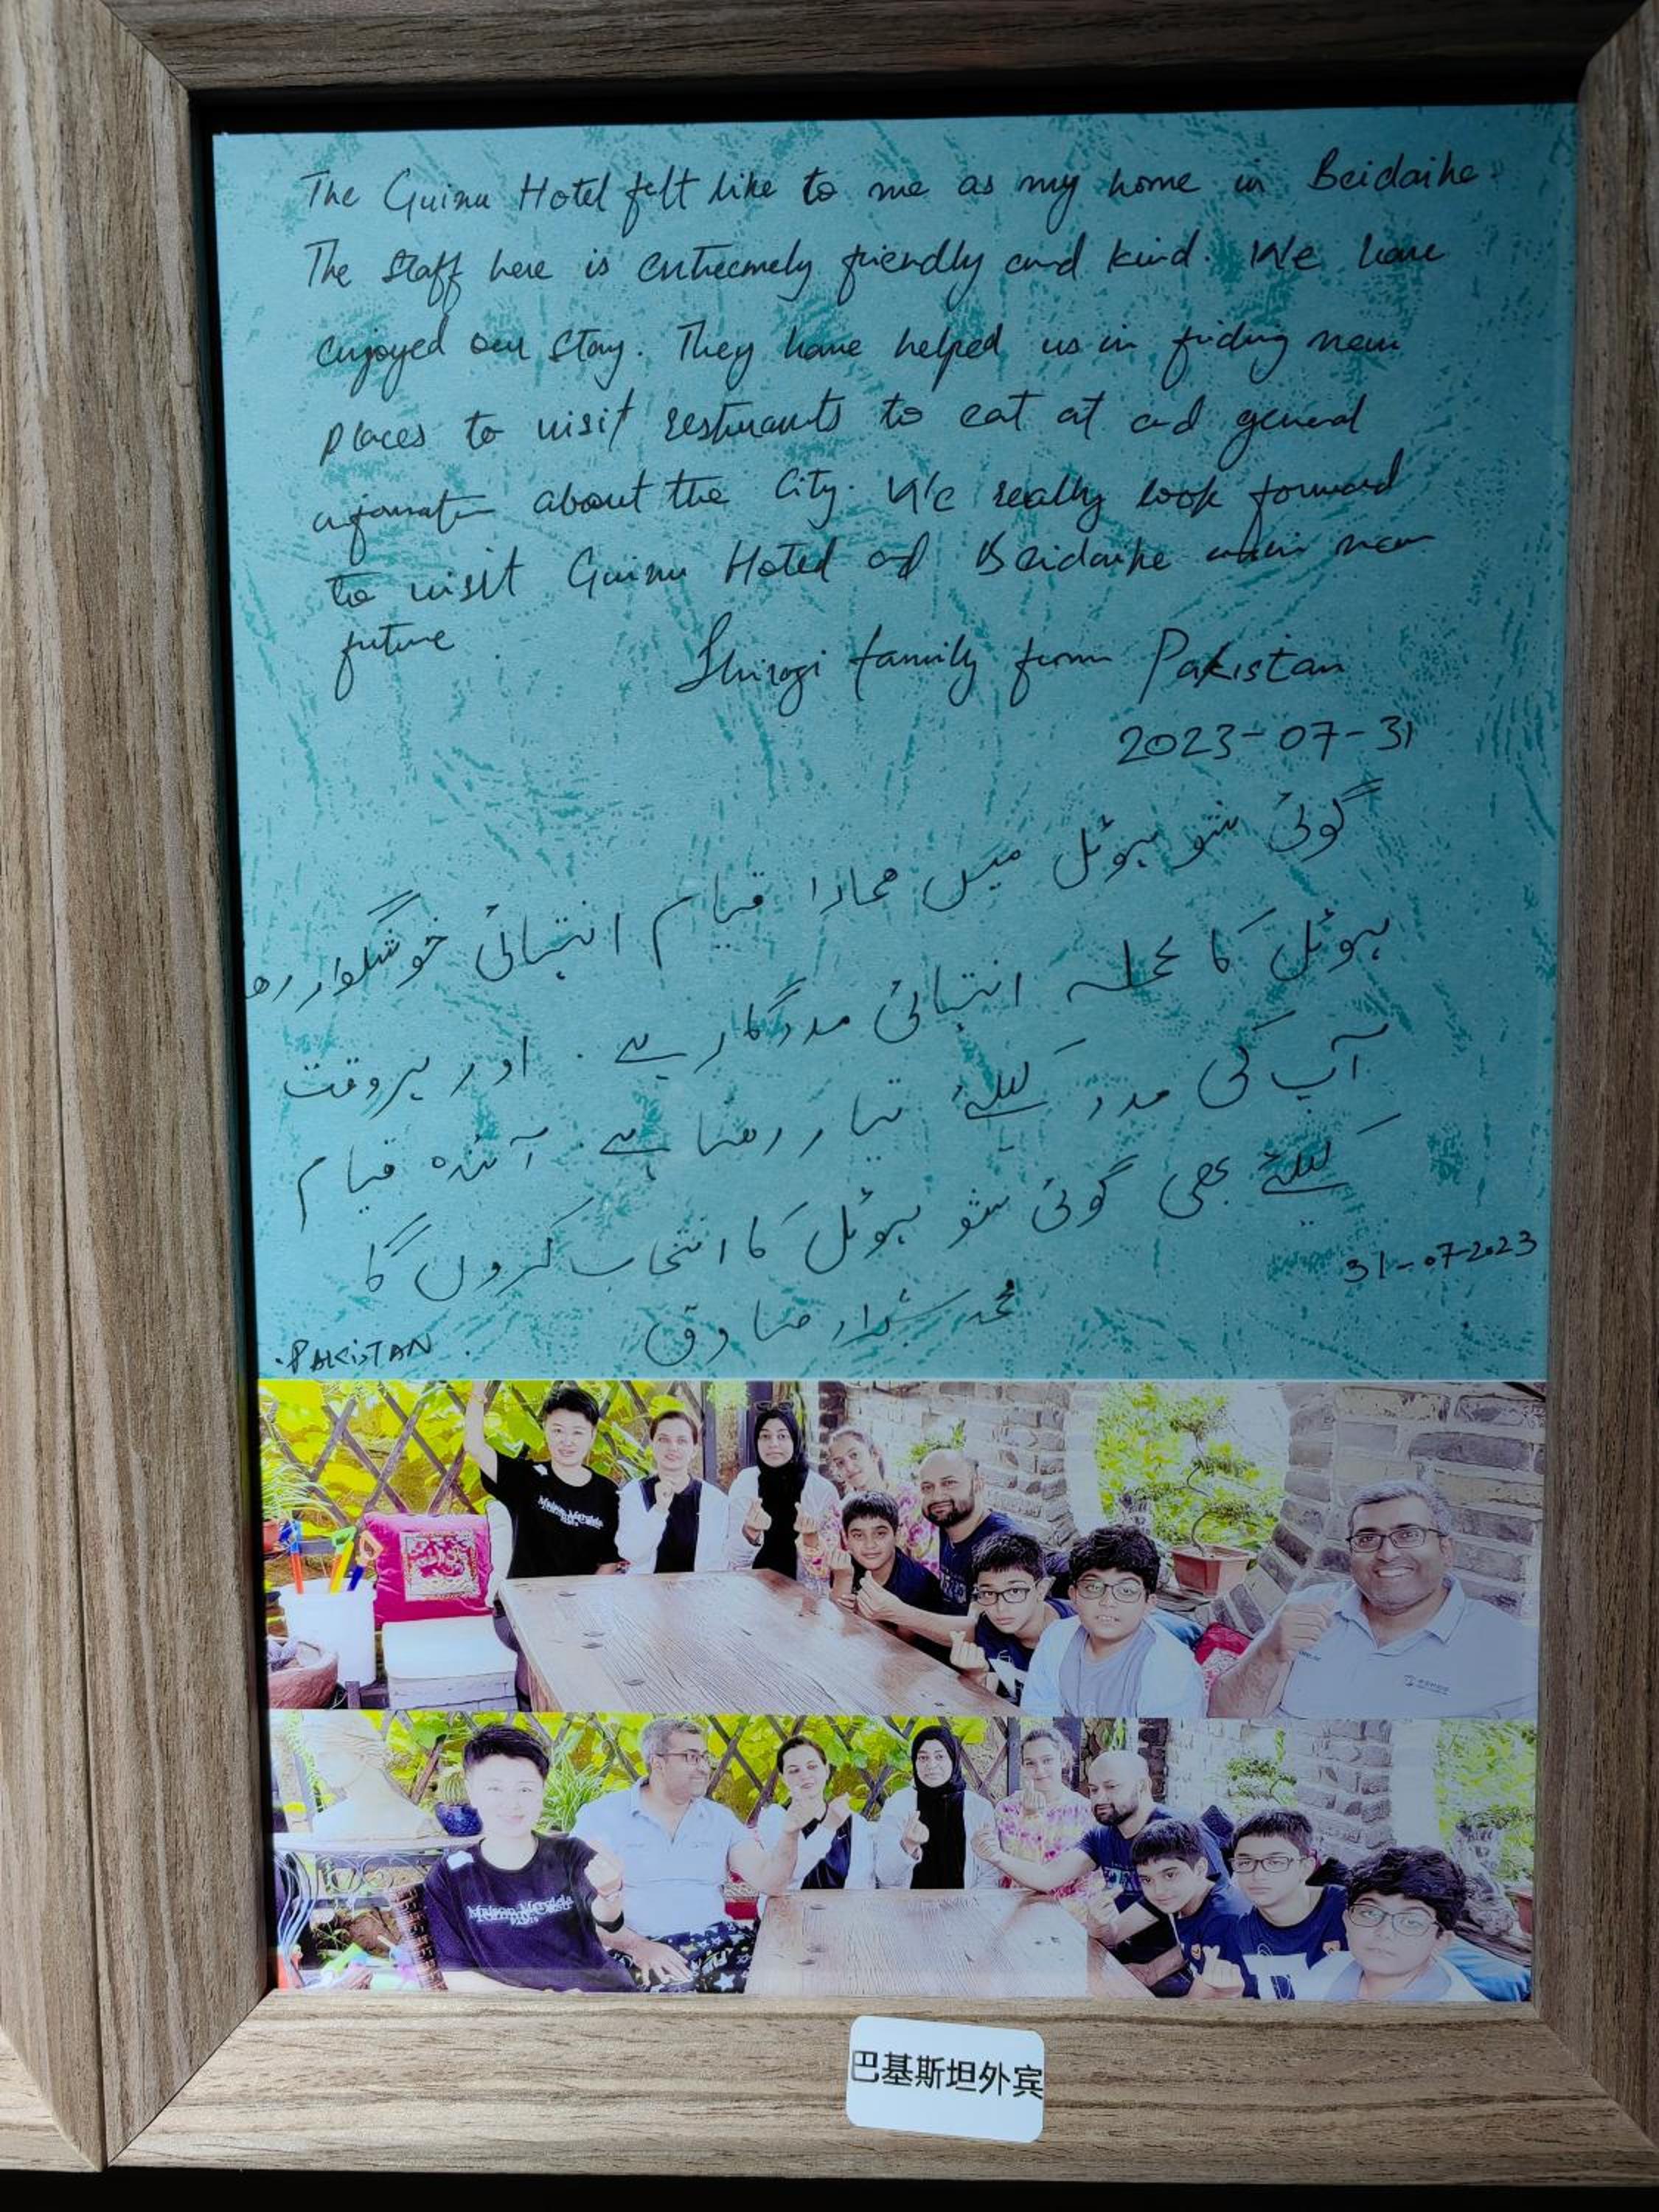 The Guinu Hotel felt like to me as my home in Beidaihe.
The Staff here is extremely friendly and kind. We have
enjoyed our stay. They have helped us in finding new
places to visit resturants to eat at and general
information about the City. We really look forward
to visit Guinu Hotel and Beidaihe in near
future.
family from Pakistan
2023-07-31
گوئی شو ہوٹل میں ہمارا قیام انتہائی خوشگوار رہ
ہوٹل کا عملہ انتہائی مددگار ہے. اور ہر وقت
آپ کی مدد کیلئے تیار رہتا ہے. آئندہ قیام
کیلئے بھی گوئی شو ہوٹل کا انتخاب کروں گا
31-07-2023
محمد صادق
PAKISTAN.
Maison Margiela
PARIS
Maison Margiela
PARIS
巴基斯坦外宾